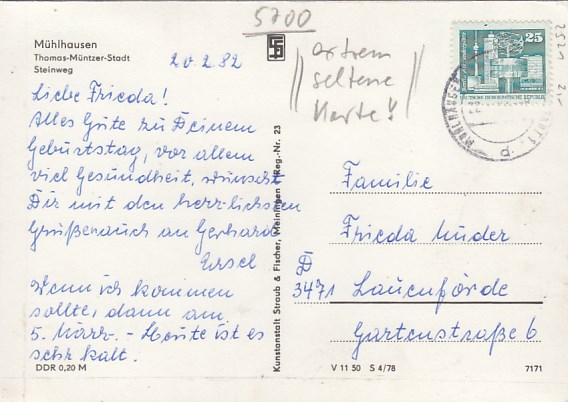 5700
Mühlhausen
Thomas-Müntzer-Stadt
Steinweg
20.2.82
extrem
seltene
Karte!!
25
DEUTSCHE DEMOKRATISCHE REPUBLIK
Liebe Frieda!
Alles Gute zu Deinem
Geburtstag, vor allem
viel Gesundheit, wünscht
Dir mit den herzlichsten
Grüßen auch an Gerhard
Ursel
Wenn ich kommen
sollte, dann am
5. März. - Heute ist es
sehr kalt.
DDR 0,20 M
Kunstanstalt Straub & Fischer, Meiningen Reg.-Nr. 23
Familie
Frieda Muder
D
3471 Lauenförde
Gartenstraße 6
V 11 50 S 4/78
7171